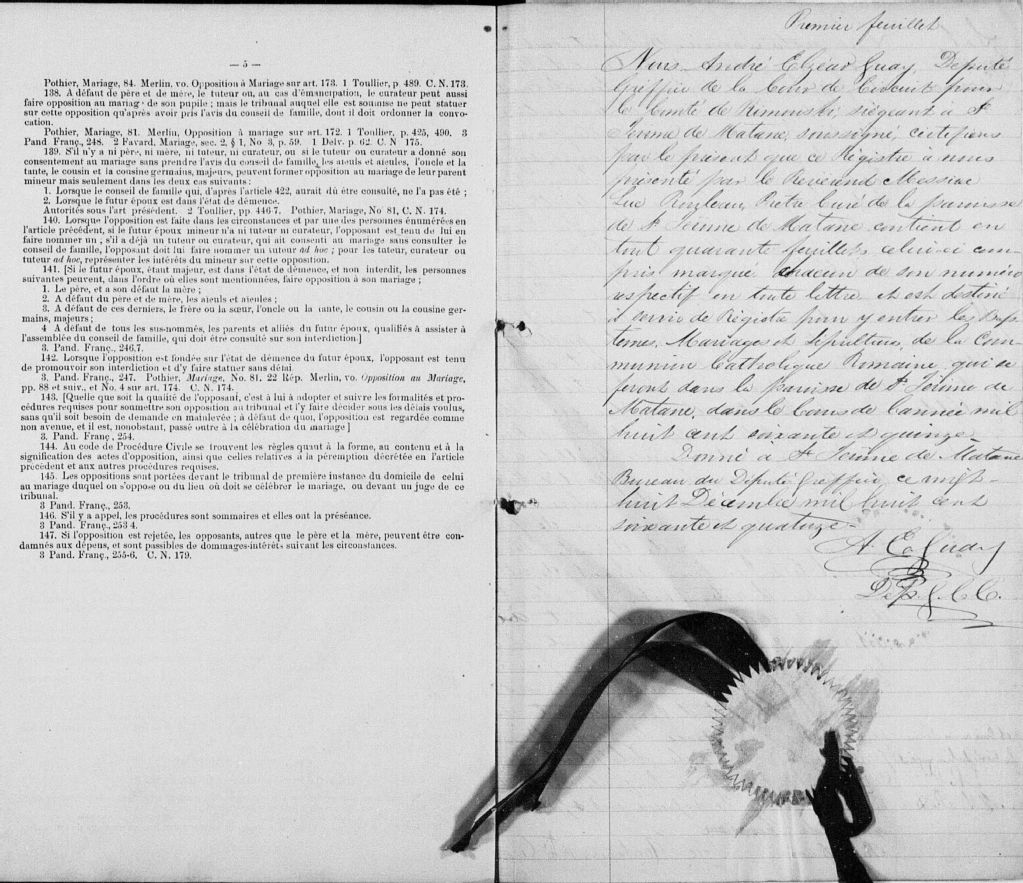 — 5 —
Pothier, Mariage, 84. Merlin, vo. Opposition à Mariage sur art. 173. 1 Toullier, p. 489. C. N. 173.
138. A défaut de père et de mère, le tuteur ou, au cas d'émancipation, le curateur peut aussi
faire opposition au mariag de son pupile ; mais le tribunal auquel elle est soumise ne peut statuer
sur cette opposition qu'après avoir pris l'avis du conseil de famille, dont il doit ordonner la convo-
cation.
Pothier, Mariage, 81. Merlin, Opposition à mariage sur art. 172. 1 Toullier, p. 425, 490. 3
Pand Franç., 248. 2 Favard, Mariage, sec. 2, § 1, No 3, p. 59. 1 Delv. p. 62. C. N 175.
139. S'il n'y a ni père, ni mère, ni tuteur, ni curateur, ou si le tuteur ou curateur a donné son
consentement au mariage sans prendre l'avis du conseil de famille, les aieuls et aieules, l'oncle et la
tante, le cousin et la cousine germains, majeurs, peuvent former opposition au mariage de leur parent
mineur mais seulement dans les deux cas suivants :
1. Lorsque le conseil de famille qui, d'après l'article 422, aurait dû être consulté, ne l'a pas été ;
2. Lorsque le futur époux est dans l'état de démence.
Autorités sous l'art présédent. 2 Toullier, pp. 446-7. Pothier, Mariage, No 81, C. N. 174.
140. Lorsque l'opposition est faite dans les circonstances et par une des personnes énumérées en
l'article précédent, si le futur époux mineur n'a ni tuteur ni curateur, l'opposant est tenu de lui en
faire nommer un ; s'il a déjà un tuteur ou curateur, qui ait consenti au mariage sans consulter le
conseil de famille, l'opposant doit lui faire nommer un tuteur ad hoc ; pour les tuteur, curateur ou
tuteur ad hoc, représenter les intérêts du mineur sur cette opposition.
141. [Si le futur époux, étant majeur, est dans l'état de démence, et non interdit, les personnes
suivantes peuvent, dans l'ordre où elles sont mentionnées, faire opposition à son mariage ;
1. Le père, et a son défaut la mère ;
2. A défaut du père et de mère, les aieuls et aieules ;
3. A défaut de ces derniers, le frère ou la sœur, l'oncle ou la tante, le cousin ou la cousine ger-
mains, majeurs ;
4 A défaut de tous les sus-nommés, les parents et alliés du futur époux, qualifiés à assister à
l'assemblée du conseil de famille, qui doit être consulté sur son interdiction.]
3. Pand. Franç., 246.7.
142. Lorsque l'opposition est fondée sur l'état de démence du futur époux, l'opposant est tenu
de promouvoir son interdiction et d'y faire statuer sans délai
3. Pand. Franç., 247. Pothier, Mariage, No. 81. 22 Rép. Merlin, vo. Opposition au Mariage,
pp. 88 et suiv., et No. 4 sur art. 174. C. N. 174.
143. [Quelle que soit la qualité de l'opposant, c'est à lui à adopter et suivre les formalités et pro-
cédures requises pour soumettre son opposition au tribunal et l'y faire décider sous les délais voulus,
sans qu'il soit besoin de demande en mainlevée ; à défaut de quoi, l'opposition est regardée comme
non avenue, et il est, nonobstant, passé outre à la célébration du mariage]
3. Pand. Franç, 254.
144. Au code de Procédure Civile se trouvent les règles quant à la forme, au contenu et à la
signification des actes d'opposition, ainsi que celles relatives à la péremption décrétée en l'article
précédent et aux autres procédures requises.
145. Les oppositions sont portées devant le tribunal de première instance du domicile de celui
au mariage duquel on s'oppose ou du lieu où doit se célébrer le mariage, ou devant un juge de ce
tribunal.
3 Pand. Franç., 253.
146. S'il y a appel, les procédures sont sommaires et elles ont la préséance.
3 Pand. Franç., 253 4.
147. Si l'opposition est rejetée, les opposants, autres que le père et la mère, peuvent être con-
damnés aux dépens, et sont passibles de dommages-intérêts suivant les circonstances.
3 Pand. Franç., 255-6. C. N. 179.
Premier feuillet
Nous, André Elzear Guay, Deputé
Greffier de la Cour de Circuit pour
le Comté de Rimouski, siégeant à St
Jerome de Matane, soussigné, certifions
par le présent que ce Régistre a nous
présenté par le Reverend Messire
Luc Rouleau, Pretre Curé de la paroisse
de St Jerome de Matane contient en
tout quarante feuillets celui-ci com
pris marqué chacun de son numéro
respectif en toute lettre et est destiné
à servir de Régistre pour y entrer les Bap
temes, Mariages et Sépultures, de la Com
munion Catholique Romaine, qui se
feront dans la Paroisse de St Jerome de
Matane, dans le Cours de l'année mil
huit cent soixante et quinze
Donné à St Jerome de Matane
Bureau du Deputé Greffier, ce vingt
huit Décembre mil huit cent
soixante et quatorze
A. E. Guay
Dep. G. C. C.